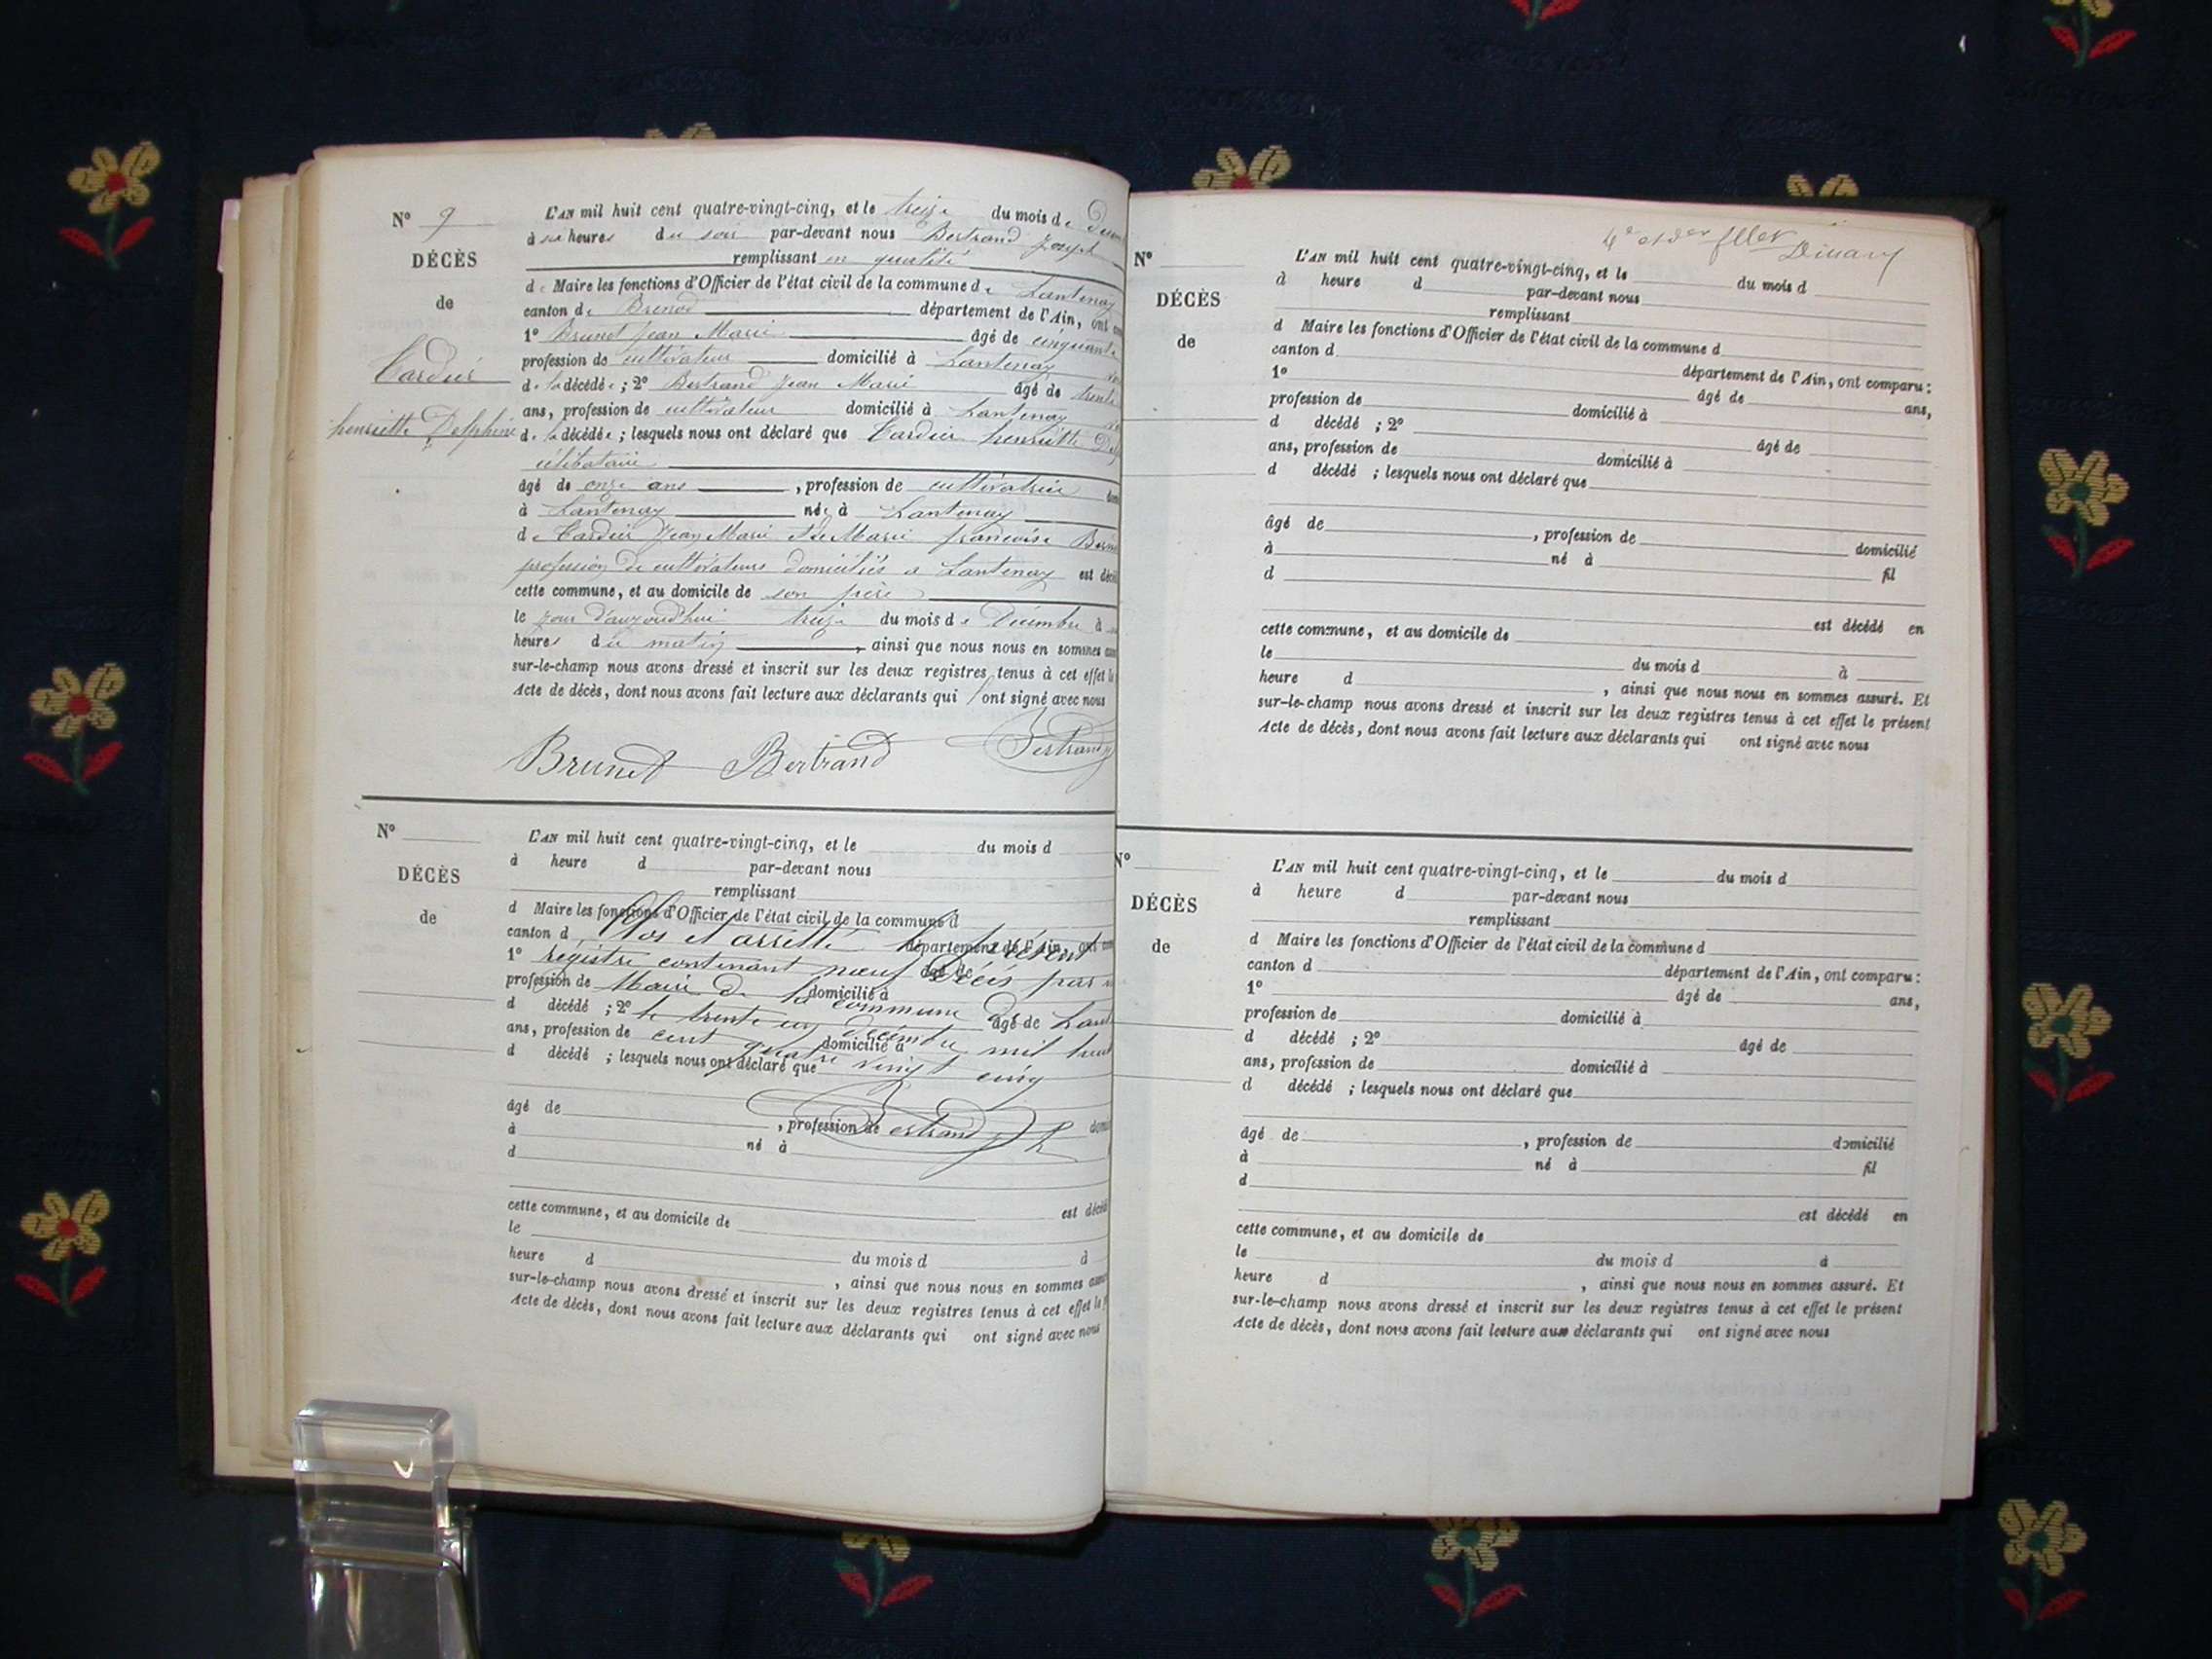 N° 9
DÉCÈS
de
Cardier
henriette Delphine
L'AN mil huit cent quatre-vingt-cinq, et le treize du mois de
à six heures du soir par-devant nous Bertrand Joseph
remplissant en qualité
de Maire les fonctions d'Officier de l'état civil de la commune de Lantenay
canton de Brenod département de l'Ain, ont
1° Brunet Jean Marie âgé de cinquante
profession de cultivateur domicilié à Lantenay
de la décédée ; 2° Bertrand Jean Marie âgé de trente
ans, profession de cultivateur domicilié à Lantenay
de la décédée ; lesquels nous ont déclaré que Cardier henriette
célibataire
âgé de onze ans , profession de cultivatrice
à Lantenay née à Lantenay
de Cardier Jean Marie et de Marie françoise
profession de cultivateurs domiciliés a Lantenay est
cette commune, et au domicile de son père
le jour d'aujourd'hui treize du mois de Décembre à
heures du matin , ainsi que nous nous en sommes
sur-le-champ nous avons dressé et inscrit sur les deux registres tenus à cet effet
Acte de décès, dont nous avons fait lecture aux déclarants qui ont signé avec nous
Brunet Bertrand Bertrand
N°
DÉCÈS
de
L'AN mil huit cent quatre-vingt-cinq, et le du mois d
à heure d par-devant nous
remplissant
d Maire les fonctions d'Officier de l'état civil de la commune d
canton d département de l'Ain, ont
1° âgé de
profession de domicilié à
d décédé ; 2° âgé de
ans, profession de domicilié à
d décédé ; lesquels nous ont déclaré que
Clos et arrêté le présent
registre contenant neuf Décés par
Maire de la commune de
le trente un décembre mil huit
cent quatre vingt cinq
âgé de
, profession de
Bertrand
à né à
d
est
cette commune, et au domicile de
le
du mois d à
heure d , ainsi que nous nous en sommes
sur-le-champ nous avons dressé et inscrit sur les deux registres tenus à cet effet
Acte de décès, dont nous avons fait lecture aux déclarants qui ont signé avec nous
4e et der
N°
DÉCÈS
de
L'AN mil huit cent quatre-vingt-cinq, et le du mois d
à heure d par-devant nous
remplissant
d Maire les fonctions d'Officier de l'état civil de la commune d
canton d département de l'Ain, ont comparu :
1° âgé de ans,
profession de domicilié à
d décédé ; 2° âgé de
ans, profession de domicilié à
d décédé ; lesquels nous ont déclaré que
âgé de , profession de domicilié
à né à fil
d
est décédé en
cette commune, et au domicile de
le du mois d à
heure d , ainsi que nous nous en sommes assuré. Et
sur-le-champ nous avons dressé et inscrit sur les deux registres tenus à cet effet le présent
Acte de décès, dont nous avons fait lecture aux déclarants qui ont signé avec nous
N°
DÉCÈS
de
L'AN mil huit cent quatre-vingt-cinq, et le du mois d
à heure d par-devant nous
remplissant
d Maire les fonctions d'Officier de l'état civil de la commune d
canton d département de l'Ain, ont comparu :
1° âgé de ans,
profession de domicilié à
d décédé ; 2° âgé de
ans, profession de domicilié à
d décédé ; lesquels nous ont déclaré que
âgé de , profession de domicilié
à né à fil
d
est décédé en
cette commune, et au domicile de
le du mois d à
heure d , ainsi que nous nous en sommes assuré. Et
sur-le-champ nous avons dressé et inscrit sur les deux registres tenus à cet effet le présent
Acte de décès, dont nous avons fait lecture aux déclarants qui ont signé avec nous